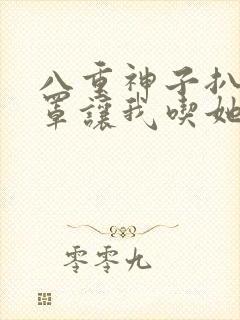 八重神子扒
罩讓我喫她
零零九